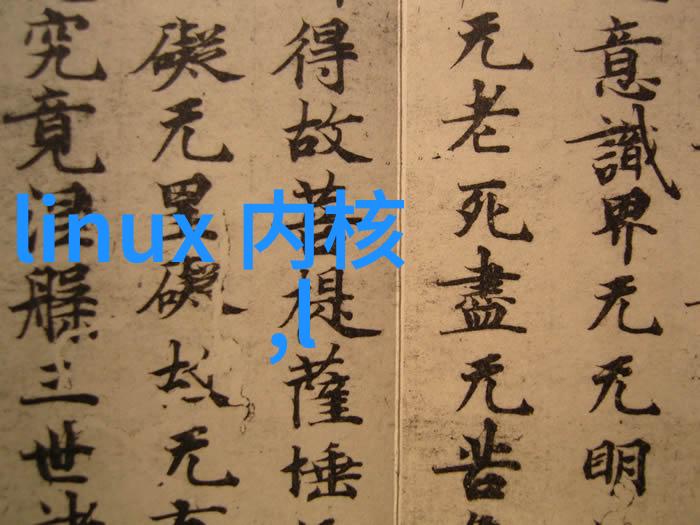 意識界无无明
无老死盡无苦
得故菩提薩埵
礙无罣礙故无有
究竟涅槃三世諸
linux 内核
,l